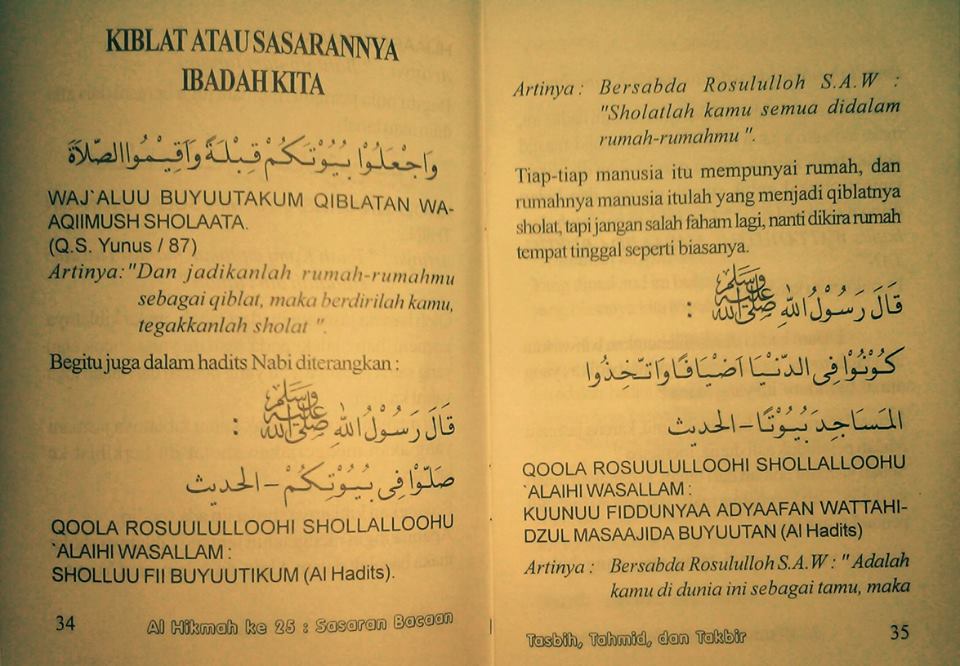 KIBLAT ATAU SASARANNYA
IBADAH KITA
وَاجْعَلُوْا بُيُوْتَكُمْ قِبْلَةً وَاَقِيْمُوا الصَّلَاةَ
WAJ`ALUU BUYUUTAKUM QIBLATAN WA-
AQIIMUSH SHOLAATA.
(Q.S. Yunus / 87)
Artinya:"Dan jadikanlah rumah-rumahmu
sebagai qiblat, maka berdirilah kamu,
tegakkanlah sholat ".
Begitu juga dalam hadits Nabi diterangkan :
قَالَ رَسُوْلُ اللهِ صَلَّى اللهُ عَلَيْهِ وَسَلَّمَ :
صَلُّوْا فِى بُيُوْتِكُمْ - الحديث
QOOLA ROSUULULLOOHI SHOLLALLOOHU
`ALAIHI WASALLAM :
SHOLLUU FII BUYUUTIKUM (Al Hadits).
34
Al Hikmah ke 25 : Sasaran Bacaan
Artinya : Bersabda Rosululloh S.A.W :
"Sholatlah kamu semua didalam
rumah-rumahmu ".
Tiap-tiap manusia itu mempunyai rumah, dan
rumahnya manusia itulah yang menjadi qiblatnya
sholat, tapi jangan salah faham lagi, nanti dikira rumah
tempat tinggal seperti biasanya.
قَالَ رَسُوْلُ اللهِ صَلَّى اللهُ عَلَيْهِ وَسَلَّمَ :
كُوْنُوْا فِى الدُّنْيَا اَضْيَافًا وَاتَّخِذُوا
المَسَاجِدَ بُيُوْتًا - الحديث
QOOLA ROSUULULLOOHI SHOLLALLOOHU
`ALAIHI WASALLAM :
KUUNUU FIDDUNYAA ADYAAFAN WATTAHI-
DZUL MASAAJIDA BUYUUTAN (Al Hadits)
Artinya : Bersabda Rosululloh S.A.W : " Adalah
kamu di dunia ini sebagai tamu, maka
Tasbih, Tahmid, dan Takbir
35